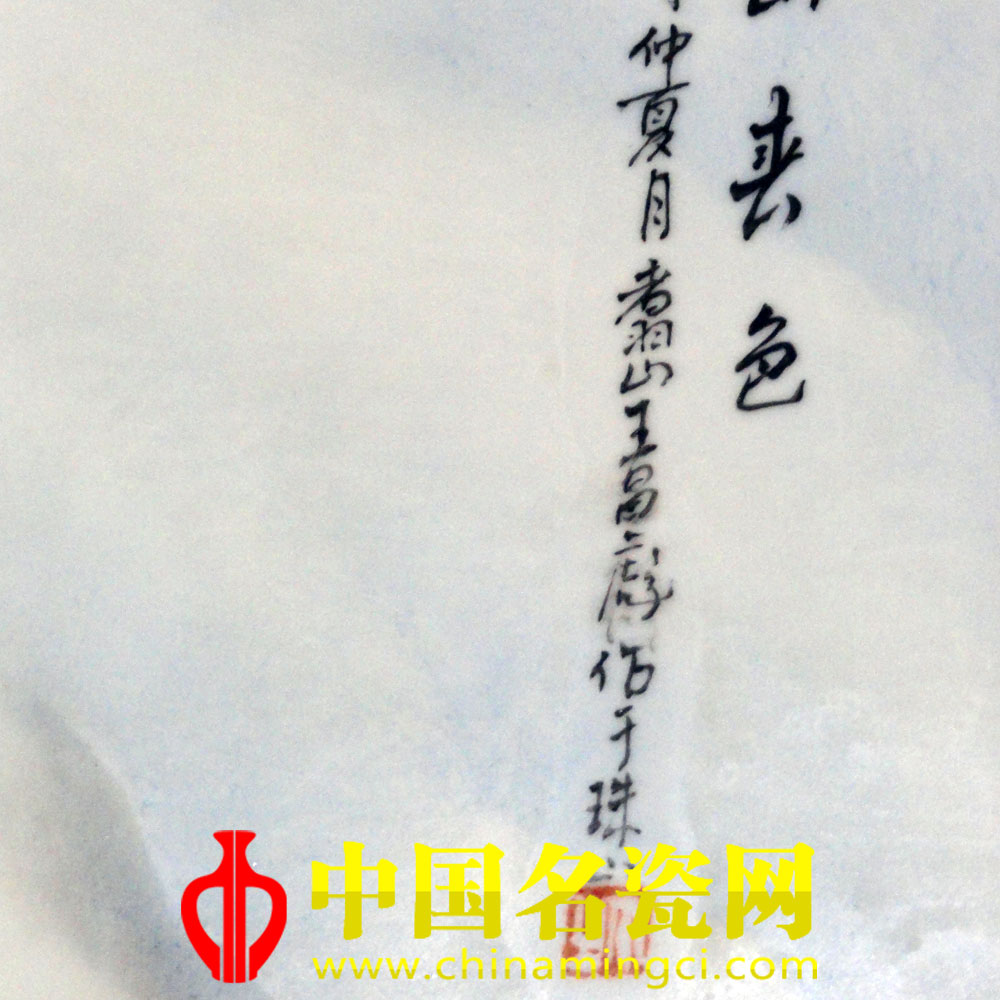 春色
仲夏月翥山王昌作于珠
中国名瓷网
www.chinamingci.com